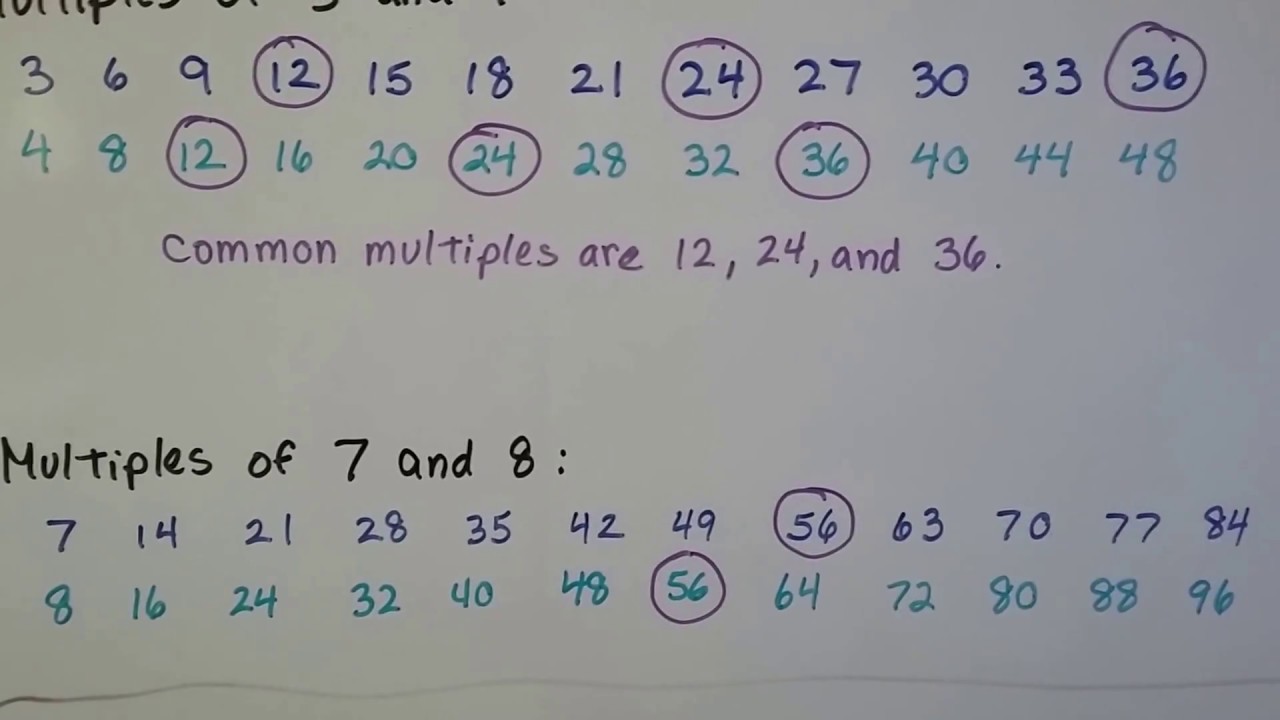 Multiples of 3 and
3 6 9 12 15 18 21 24 27 30 33 36
4 8 12 16 20 24 28 32 36 40 44 48
Common multiples are 12, 24, and 36.
Multiples of 7 and 8:
7 14 21 28 35 42 49 56 63 70 77 84
8 16 24 32 40 48 56 64 72 80 88 96